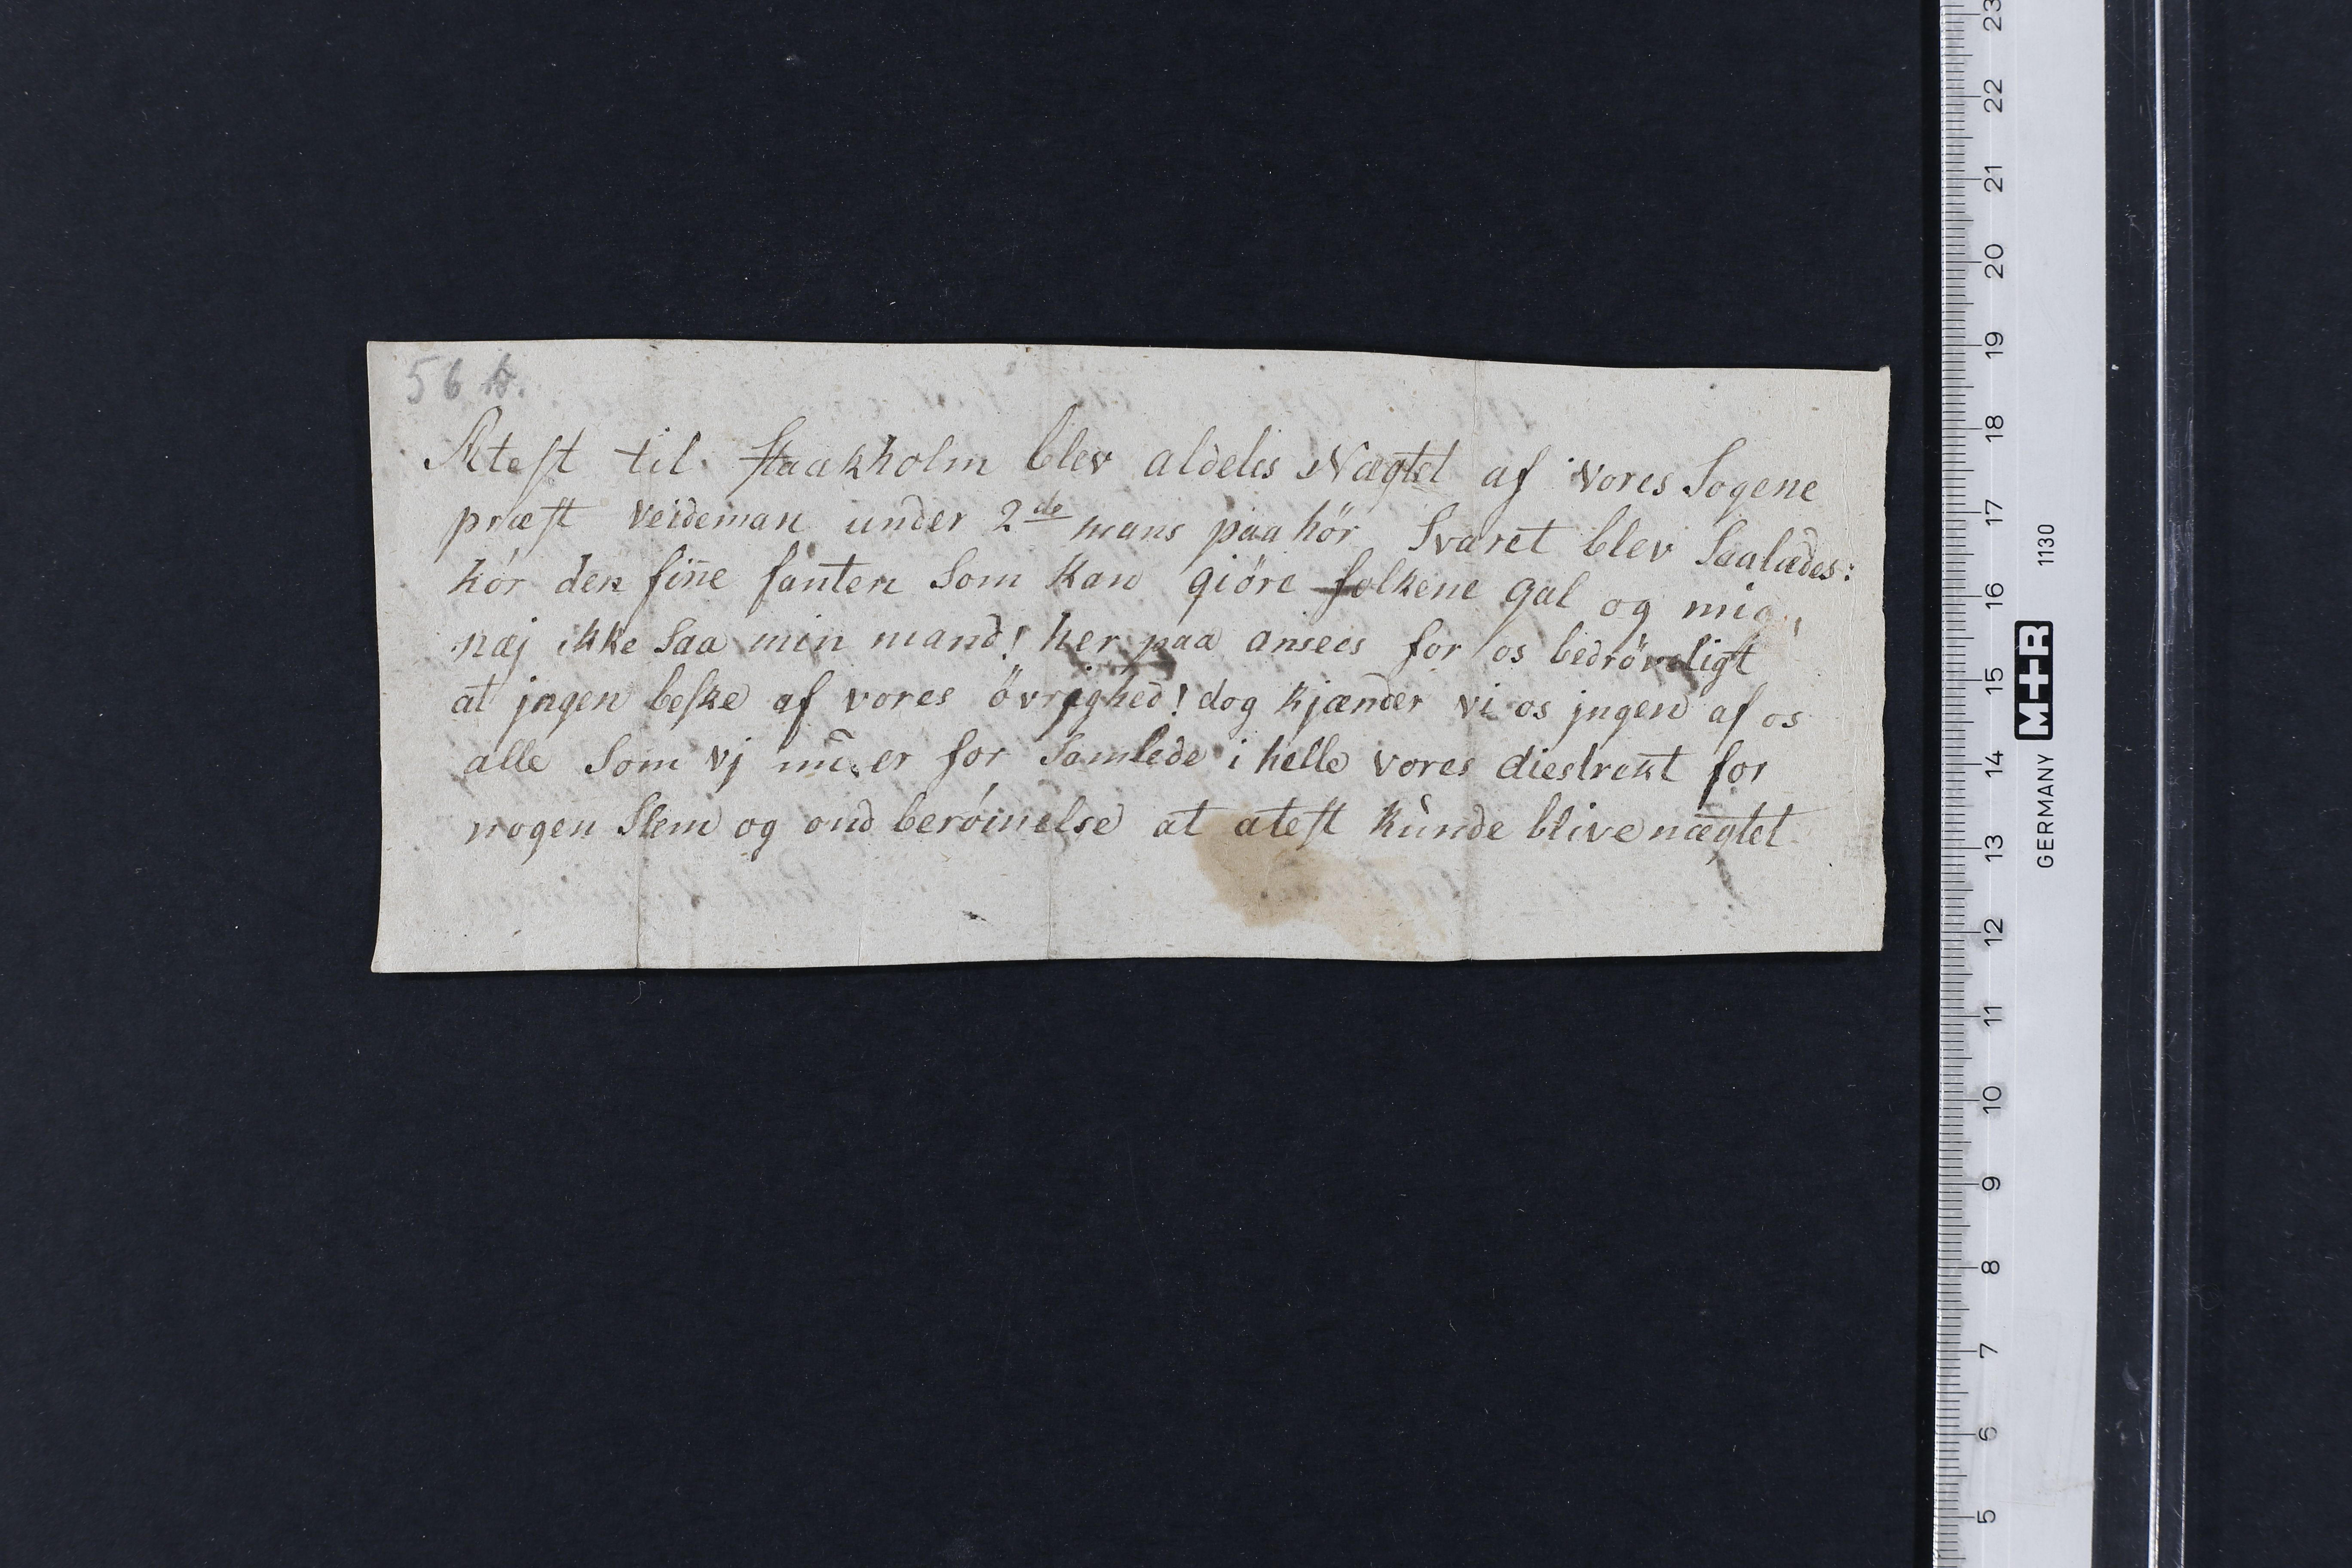 56 b.
Atest til Staakholm blev aldeles Nægtet af vores Sogene
præst veideman under 2de mans paahör Svaret blev Saalædes:
hör den fine fanten Som Kan giöre folkene gal og mig,
næj ikke Saa min mand! her paa ansees for os bedröveligt
at jngen beske af vores övrighed! dog kjænder vi os jngen af os
alle Som vj nu er for Samlede i helle vores diestrekt for
nogen Slem og ond beröimelse at atest kunde blive nægtet
23
22
21
20
19
18
17
16
15
14
13
12
11
10
9
8
7
6
5
GERMANY M+R 1130